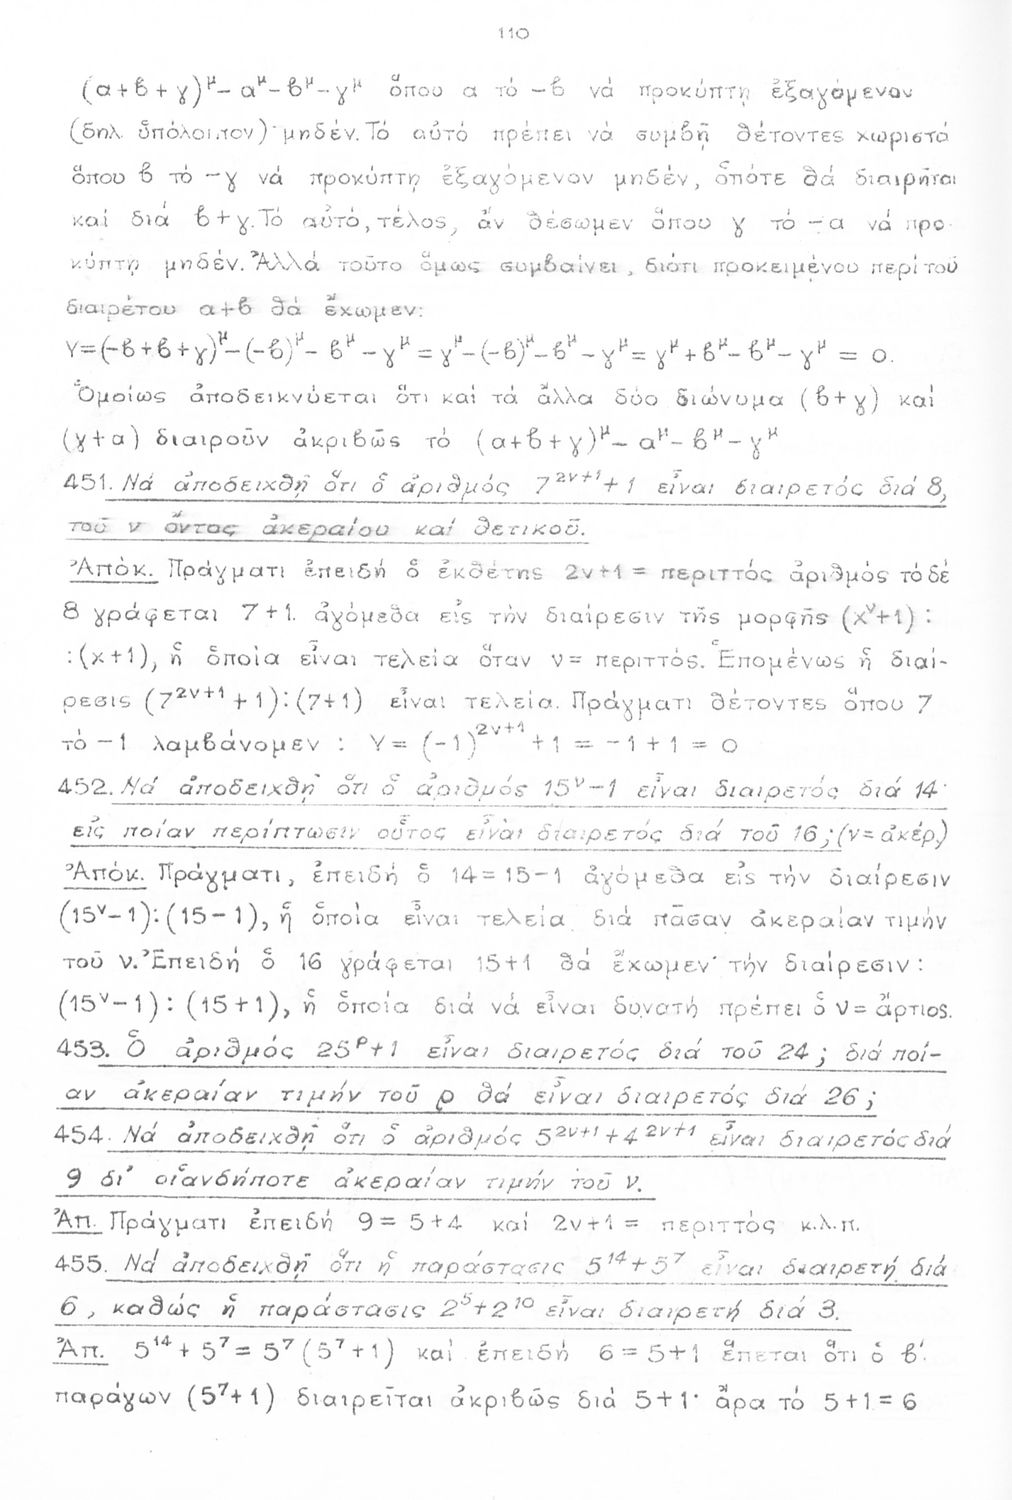 110
(α+β+γ)^μ – α^μ – β^μ – γ^μ ὅπου α τό –β νά προκύπτῃ ἐξαγόμενον
(δηλ. ὑπόλοιπον) μηδέν. Τό αὐτό πρέπει νά συμβῇ θέτοντες χωριστά
ὅπου β τό –γ νά προκύπτῃ ἐξαγόμενον μηδέν, ὁπότε θά διαιρῆται
καί διά β+γ. Τό αὐτό, τέλος, ἄν θέσωμεν ὅπου γ τό –α νά προ-
κύπτῃ μηδέν. Ἀλλά τοῦτο ὅμως συμβαίνει, διότι προκειμένου περί τοῦ
διαιρέτου α+β θά ἔχωμεν:
Υ=(-β+β+γ)^μ – (-β)^μ – β^μ – γ^μ = γ^μ – (-β)^μ – β^μ – γ^μ = γ^μ + β^μ – β^μ – γ^μ = 0.
Ὁμοίως ἀποδεικνύεται ὅτι καί τά ἄλλα δύο διώνυμα (β+γ) καί
(γ+α) διαιροῦν ἀκριβῶς τό (α+β+γ)^μ – α^μ – β^μ – γ^μ
451. Νά ἀποδειχθῇ ὅτι ὁ ἀριθμός 7^{2ν+1}+1 εἶναι διαιρετός διά 8,
τοῦ ν ὄντος ἀκεραίου καί θετικοῦ.
Ἀπόκ. Πράγματι ἐπειδή ὁ ἐκθέτης 2ν+1 = περιττός ἀριθμός τό δέ
8 γράφεται 7+1. ἀγόμεθα εἰς τήν διαίρεσιν τῆς μορφῆς (x^ν+1) :
:(x+1), ἡ ὁποία εἶναι τελεία ὅταν ν= περιττός. Ἑπομένως ἡ διαί-
ρεσις (7^{2ν+1}+1):(7+1) εἶναι τελεία. Πράγματι θέτοντες ὅπου 7
τό –1 λαμβάνομεν : Υ= (-1)^{2ν+1}+1 = –1+1 = 0
452. Νά ἀποδειχθῇ ὅτι ὁ ἀριθμός 15^ν–1 εἶναι διαιρετός διά 14·
εἰς ποίαν περίπτωσιν οὗτος εἶναι διαιρετός διά τοῦ 16; (ν=ἀκέρ.)
Ἀπόκ. Πράγματι, ἐπειδή ὁ 14=15–1 ἀγόμεθα εἰς τήν διαίρεσιν
(15^ν–1):(15–1), ἡ ὁποία εἶναι τελεία διά πᾶσαν ἀκεραίαν τιμήν
τοῦ ν. Ἐπειδή ὁ 16 γράφεται 15+1 θά ἔχωμεν τήν διαίρεσιν:
(15^ν–1) : (15+1), ἡ ὁποία διά νά εἶναι δυνατή πρέπει ὁ ν= ἄρτιος.
453. Ὁ ἀριθμός 25^ρ+1 εἶναι διαιρετός διά τοῦ 24; διά ποί-
αν ἀκεραίαν τιμήν τοῦ ρ θά εἶναι διαιρετός διά 26;
454. Νά ἀποδειχθῇ ὅτι ὁ ἀριθμός 5^{2ν+1}+4^{2ν+1} εἶναι διαιρετός διά
9 δι' οἱανδήποτε ἀκεραίαν τιμήν τοῦ ν.
Ἀπ. Πράγματι ἐπειδή 9= 5+4 καί 2ν+1 = περιττός κ.λ.π.
455. Νά ἀποδειχθῇ ὅτι ἡ παράστασις 5^{14}+5^7 εἶναι διαιρετή διά
6, καθώς ἡ παράστασις 2^5+2^{10} εἶναι διαιρετή διά 3.
Ἀπ. 5^{14}+5^7= 5^7(5^7+1) καί ἐπειδή 6=5+1 ἕπεται ὅτι ὁ β'.
παράγων (5^7+1) διαιρεῖται ἀκριβῶς διά 5+1· ἄρα τό 5+1=6